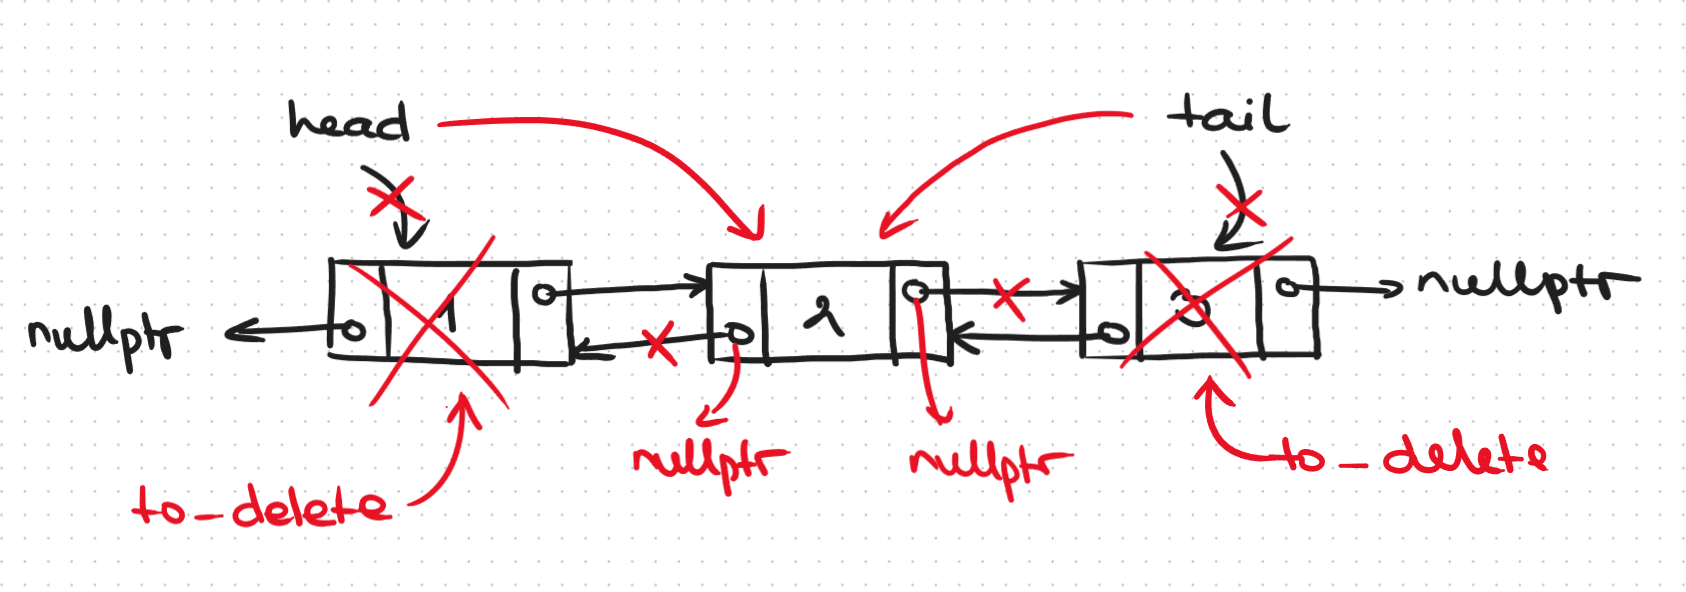 head
tail
nullptr
1
2
3
nullptr
nullptr
nullptr
to_delete
to_delete